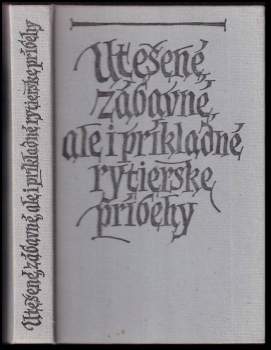 Utešené, zábavné, ale i príkladné rytierske príbehy
Utešené,
zábavné,
ale i príkladné
rytierske
príbehy